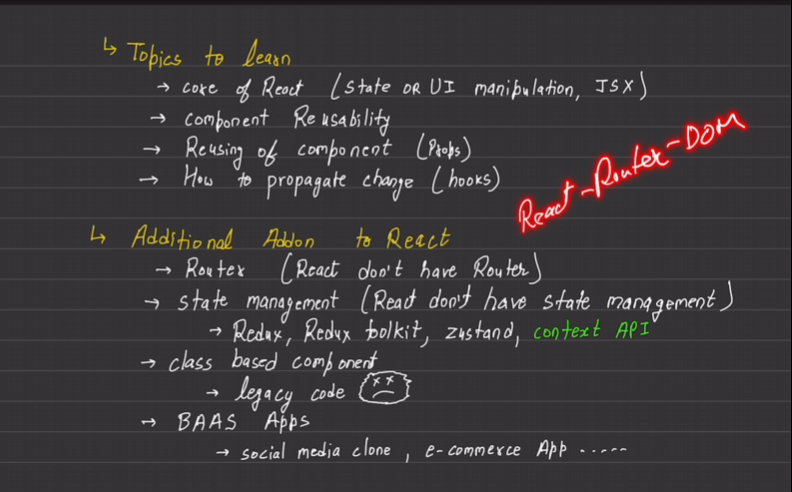 ↳ Topics to learn
→ core of React (state OR UI manipulation, JSX)
→ component Reusability
→ Reusing of component (Props)
→ How to propagate change (hooks)
React-Router-DOM
↳ Additional Addon to React
→ Router (React don't have Router)
→ state management (React don't have state management)
→ Redux, Redux toolkit, zustand, context API
→ class based component
→ legacy code
→ BAAS Apps
→ social media clone, e-commerce App .....